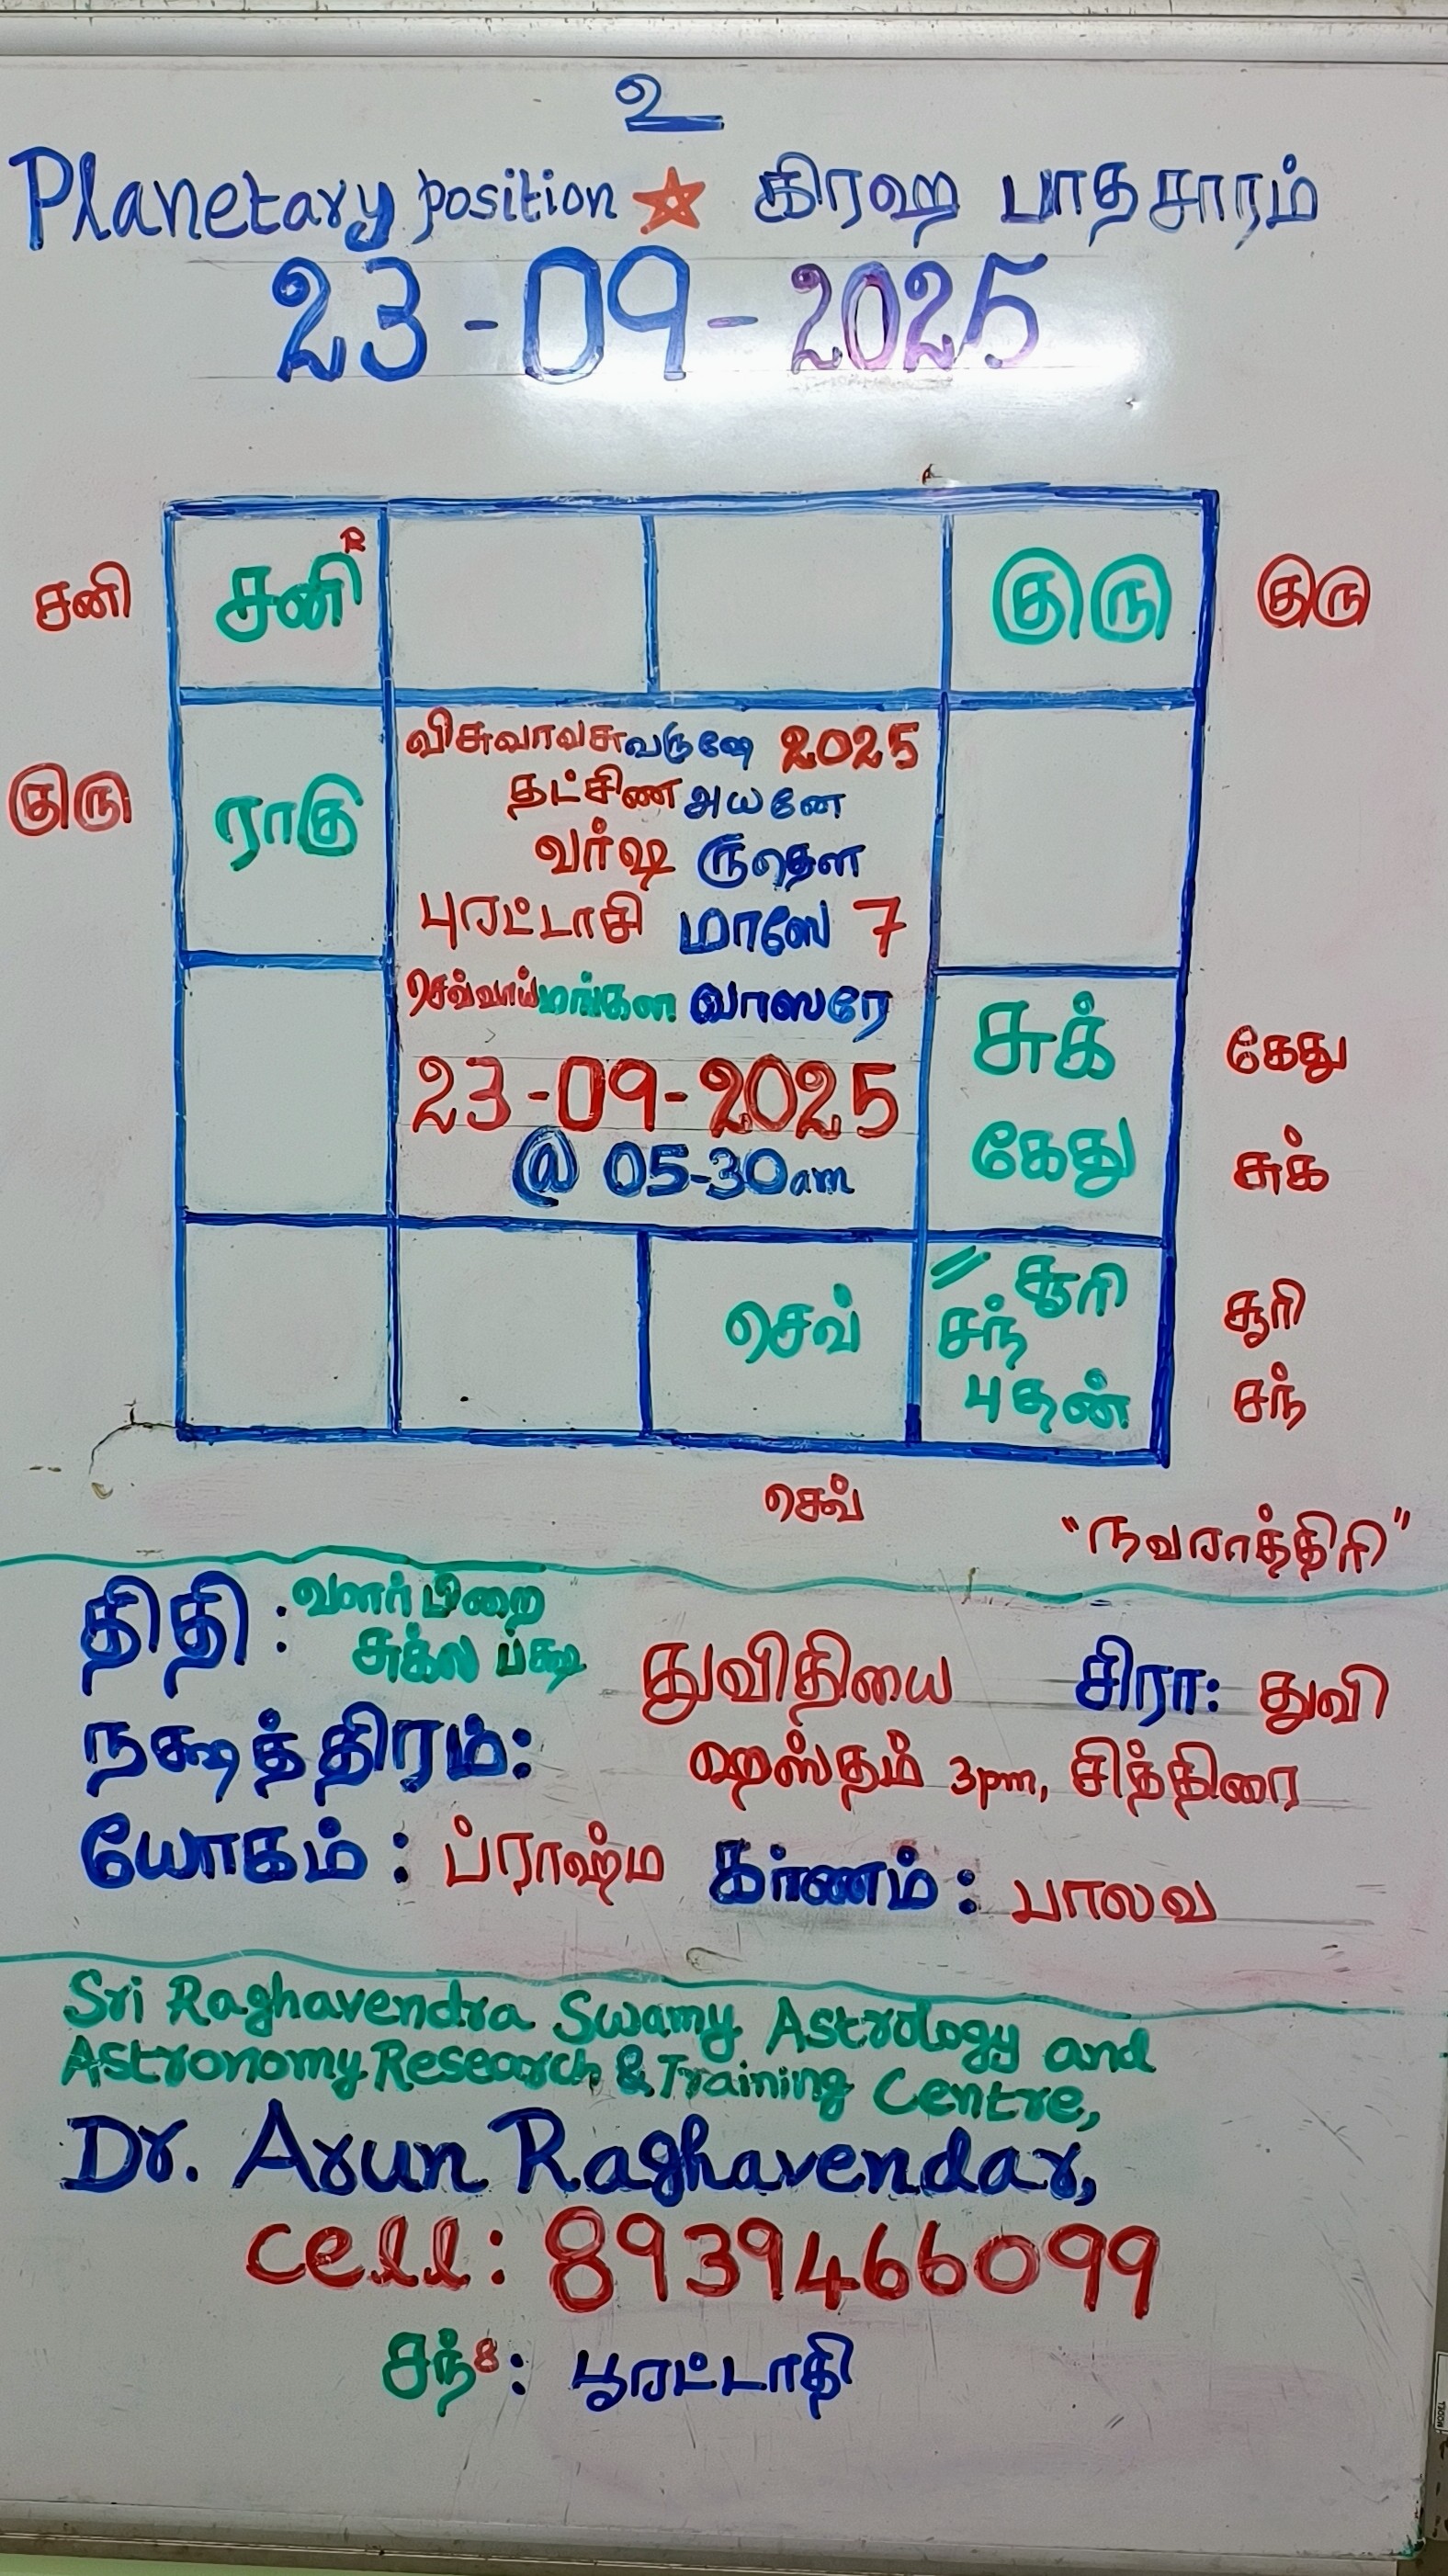 உ
Planetary position ☆ கிரஹ பாதசாரம்
23-09-2025
சனி சனி R குரு குரு
குரு ராகு
விசுவாவசுவருஷே 2025
தட்சிண அயனே
வர்ஷ ருதௌ
புரட்டாசி மாஸே 7
செவ்வாய்மங்கள வாஸரே
23-09-2025
@ 05-30am
சுக் கேது
கேது சுக்
செவ் சூரி சூரி
சந் சந்
புதன்
செவ்
"நவராத்திரி"
திதி : வளர்பிறை
சுக்ல பக்ஷ துவிதியை சிரா: துவி
நக்ஷத்திரம்: ஹஸ்தம் 3pm, சித்திரை
யோகம் : ப்ராஹ்ம கர்ணம் : பாலவ
Sri Raghavendra Swamy Astrology and
Astronomy Research & Training Centre,
Dr. Arun Raghavendar,
cell: 8939466099
சந்8: பூரட்டாதி